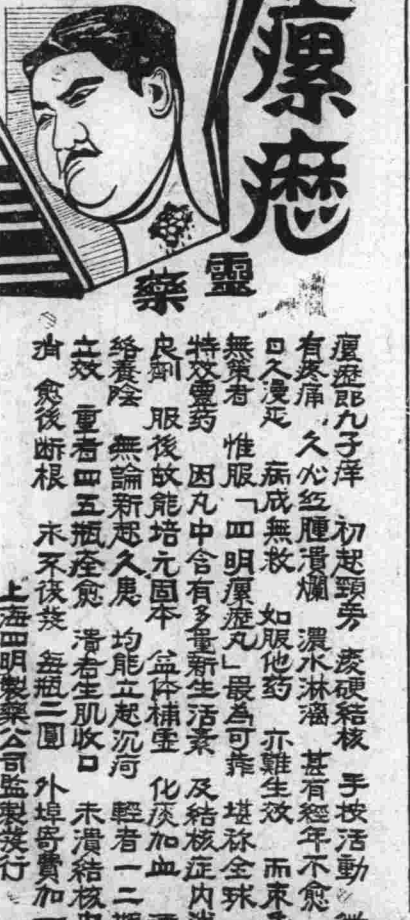 瘰癧
靈藥
瘰癧即九子痒 初起頸旁 痰硬結核 手按活動
有疼痛 久必紅腫潰爛 濃水淋漓 甚有經年不愈
日久漫延 病成無救 如服他药 亦難生效 而束手
無策者 惟服「四明瘰癧丸」最為可靠 堪称全球
特效靈药 因丸中含有多量新生活素 及結核症内消
良劑 服後故能培元固本 益体補虛 化痰加血
絡養陰 無論新起久患 均能立起沉疴 輕者一二瓶
立效 重者四五瓶痊愈 潰者生肌收口 未潰結核
消 愈後断根 永不復發 每瓶二圓 外埠寄費加一
上海四明製藥公司監製發行